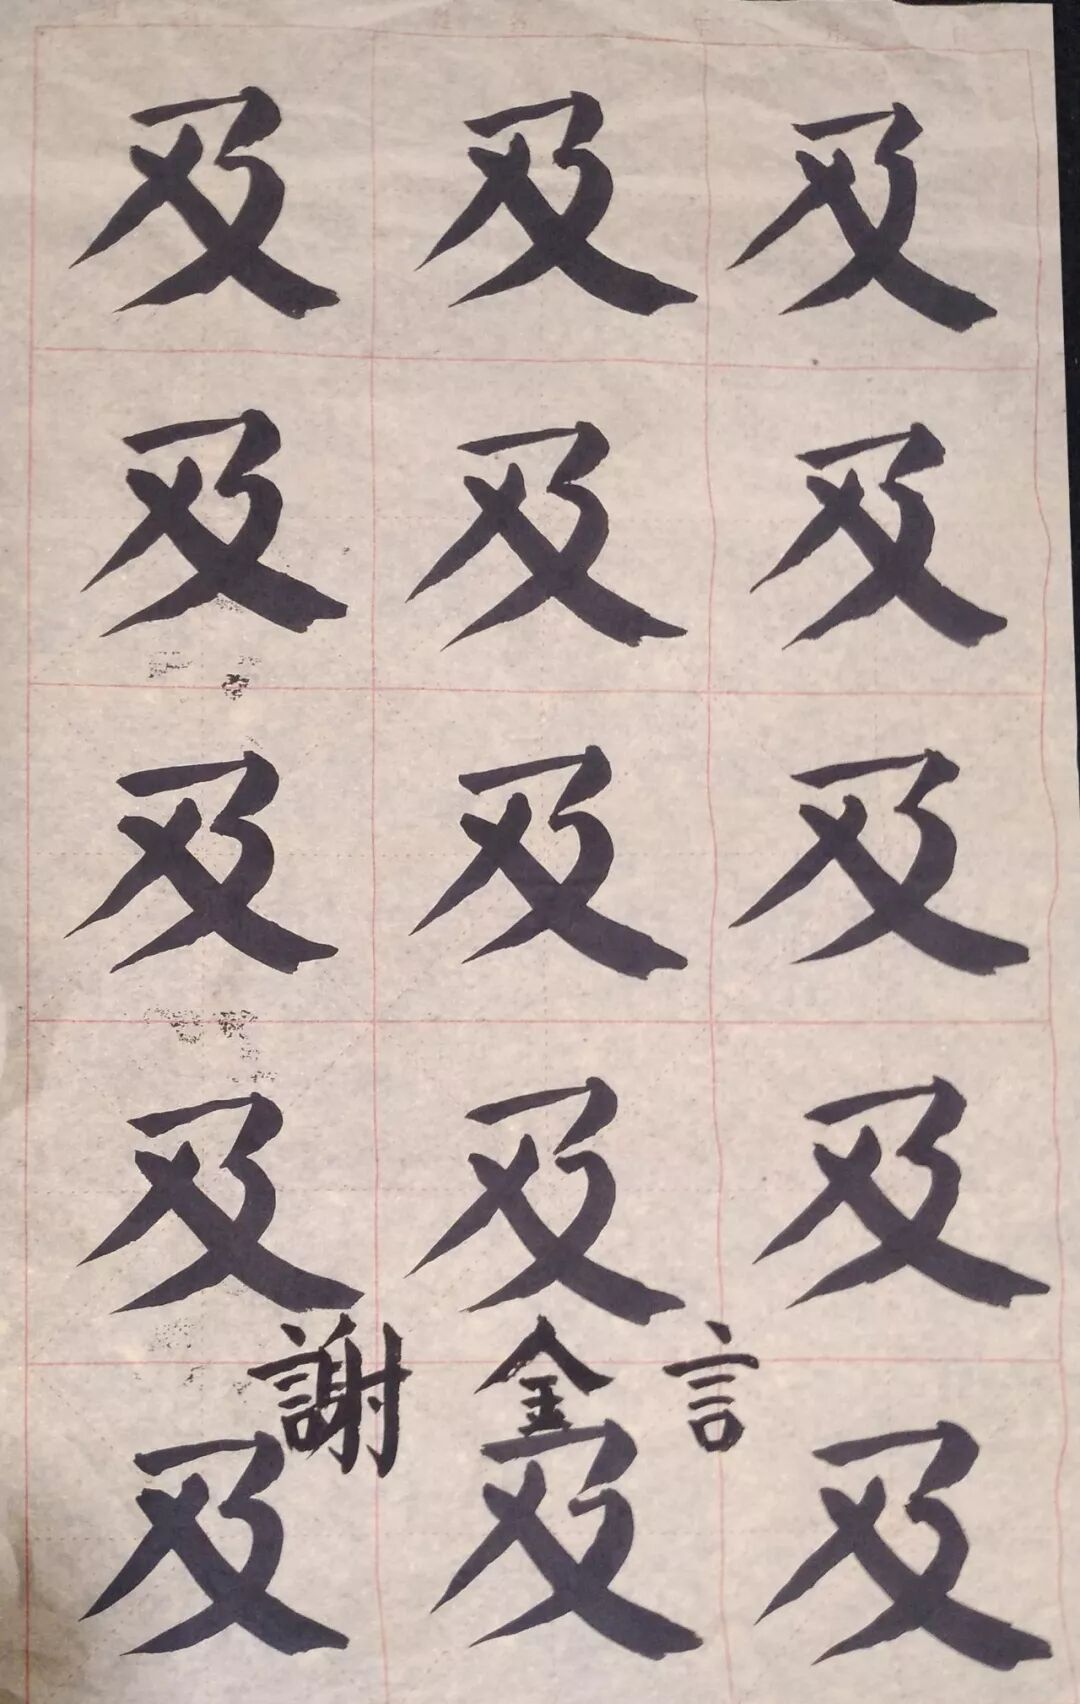 及 及 及
及 及 及
及 及 及
及 及 及
謝 金 言
及 及 及